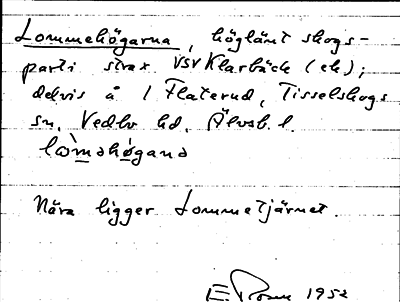 Lommehögarna, höglänt skogs-
parti strax VSV Klarbäck (ek);
delvis å 1 Flaterud, Tisselskogs
sn, Vedbo hd, Älvsb. l.
Nära ligger Lommetjärnet.
1952